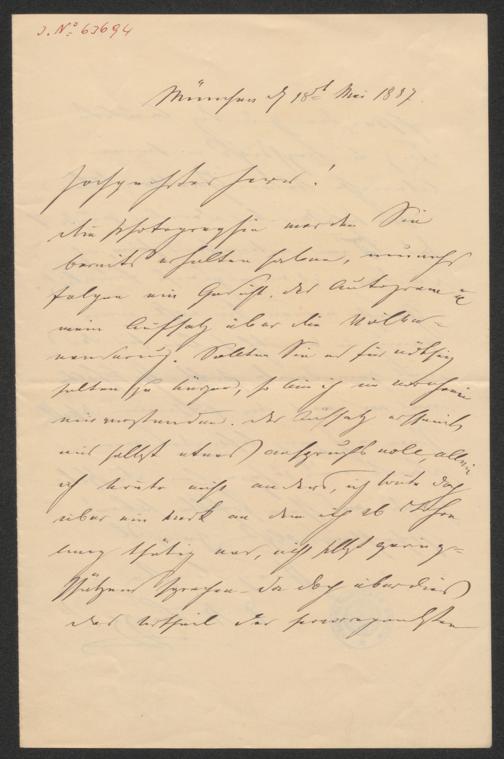 J. No 63694
München d 18t Mai 1887.
Hochgeehrter Herr!
die Photographie werden Sie
bereits erhalten haben, nun
folgen ein Gedicht, das Autogramm u
mein Aufsatz über die Völker-
wanderung. Sollten Sie es für nöthig
halten zu kürzen, so bin ich im
einverstanden. Der Aufsatz erscheint
mir selbst etwas anspruchsvoll, allein
ich konnte nicht anders, ich konnte doch
über ein Werk an dem ich 26 Jahre
lang thätig war, nicht selbst gering-
schätzend sprechen da doch überdies
das Urtheil der